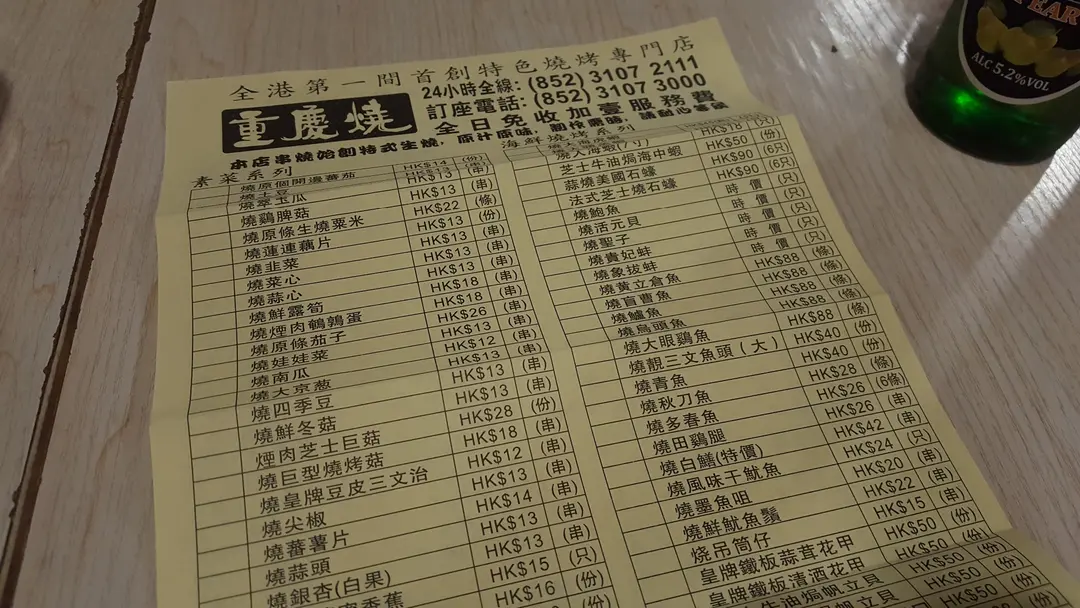 全港第一間首創特色燒烤專門店
24小時全線: (852) 3107 2111
訂座電話: (852) 3107 3000
重慶燒
全日免收加壹服務費
本店串燒始創特式生燒，原汁原味，制作需時，請耐心等候
素菜系列
燒原個開邊蕃茄 HK$14 (份)
燒土豆 HK$13 (串)
燒翠玉瓜 HK$13 (串)
燒鷄脾菇 HK$22 (條)
燒原條生燒粟米 HK$13 (份)
燒蓮連藕片 HK$13 (串)
燒韭菜 HK$13 (串)
燒菜心 HK$13 (串)
燒蒜心 HK$18 (串)
燒鮮露筍 HK$18 (串)
燒煙肉鵪鶉蛋 HK$26 (串)
燒原條茄子 HK$13
燒娃娃菜 HK$12 (串)
燒南瓜 HK$13 (串)
燒大京葱 HK$13 (串)
燒四季豆 HK$13 (串)
燒鮮冬菇
煙肉芝士巨菇 HK$28 (份)
燒巨型燒烤菇 HK$18 (串)
燒皇牌豆皮三文治 HK$12 (串)
燒尖椒 HK$14 (串)
燒蕃薯片 HK$13 (串)
燒蒜頭 HK$13 (串)
燒銀杏(白果) HK$15 (只)
香蕉 HK$16 (份)
海鮮燒烤系列
燒大海蝦(7寸) HK$18 (只)
芝士牛油焗海中蝦 HK$50 (份)
蒜燒美國石蠔 HK$90 (6只)
法式芝士燒石蠔 HK$90 (6只)
燒鮑魚 時價 (只)
燒活元貝 時價 (只)
燒聖子 時價 (只)
燒貴妃蚌 時價 (只)
燒象拔蚌
燒黃立倉魚 HK$88 (條)
燒盲曹魚 HK$88 (條)
燒鱸魚 HK$88 (條)
燒烏頭魚
燒大眼鷄魚 HK$88 (條)
燒靚三文魚頭(大) HK$40 (份)
燒青魚 HK$40 (份)
燒秋刀魚 HK$28 (條)
燒多春魚 HK$26 (6條)
燒田鷄腿 HK$26 (串)
燒白鱔(特價) HK$42 (串)
燒風味干魷魚 HK$24 (只)
燒墨魚咀 HK$20 (串)
燒鮮魷魚鬚 HK$22 (串)
燒吊筒仔 HK$15 (串)
皇牌鐵板蒜茸花甲 HK$50 (份)
皇牌鐵板清酒花甲 HK$50 (份)
牛油焗帆立貝 HK$50 (份)
帆立貝 HK$50 (份)
PEAR
ALC 5.2% VOL